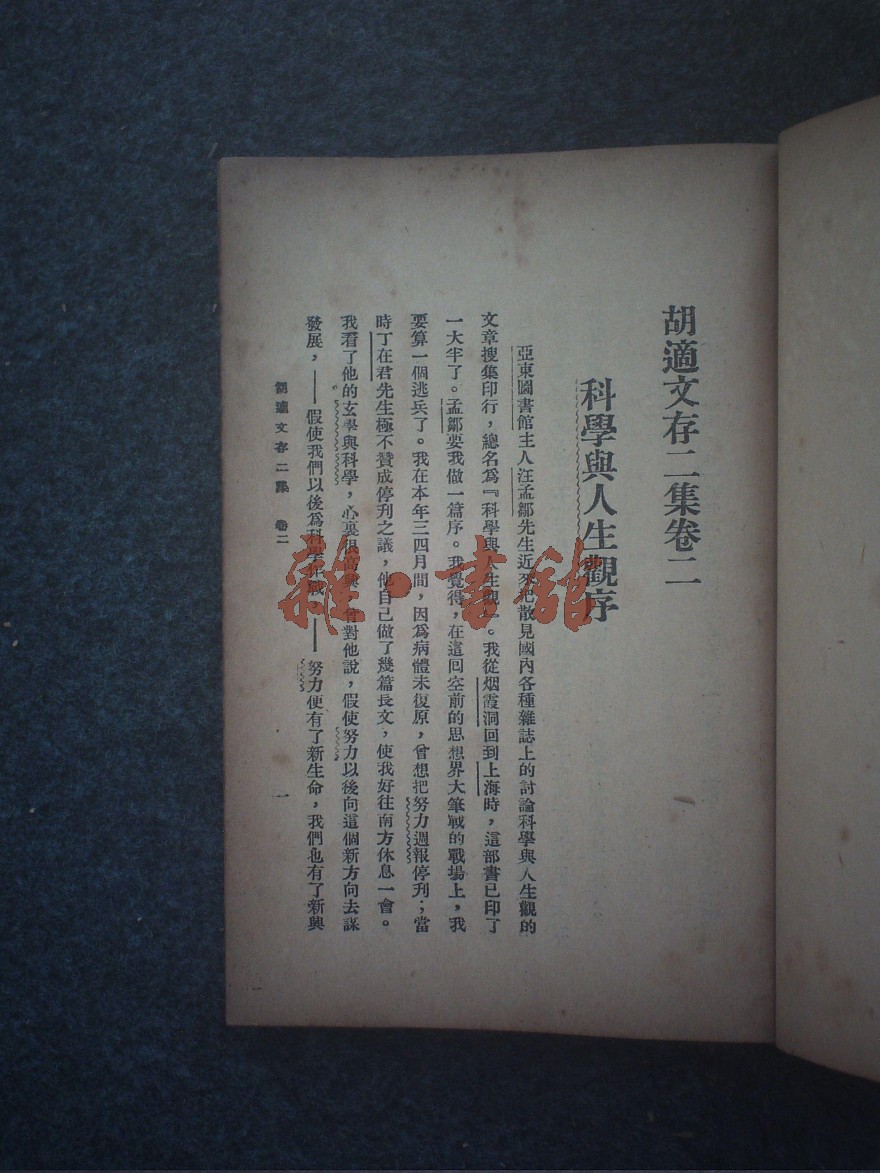 胡適文存二集卷二
科學與人生觀序
亞東圖書館主人汪孟鄒先生近來把散見國內各種雜誌上的討論科學與人生觀的
文章搜集印行，總名爲『科學與人生觀』。我從烟霞洞回到上海時，這部書已印了
一大半了。孟鄒要我做一篇序。我覺得，在這回空前的思想界大筆戰的戰場上，我
要算一個逃兵了。我在本年三四月間，因爲病體未復原，曾想把努力週報停刋；當
時丁在君先生極不贊成停刋之議，他自己做了幾篇長文，使我好往南方休息一會。
我看了他的玄學與科學，心裏很高興，曾對他說，假使努力以後向這個新方向去謀
發展，——假使我們以後爲科學作戰，——努力便有了新生命，我們也有了新興
胡適文存二集 卷二
一
雜·書館